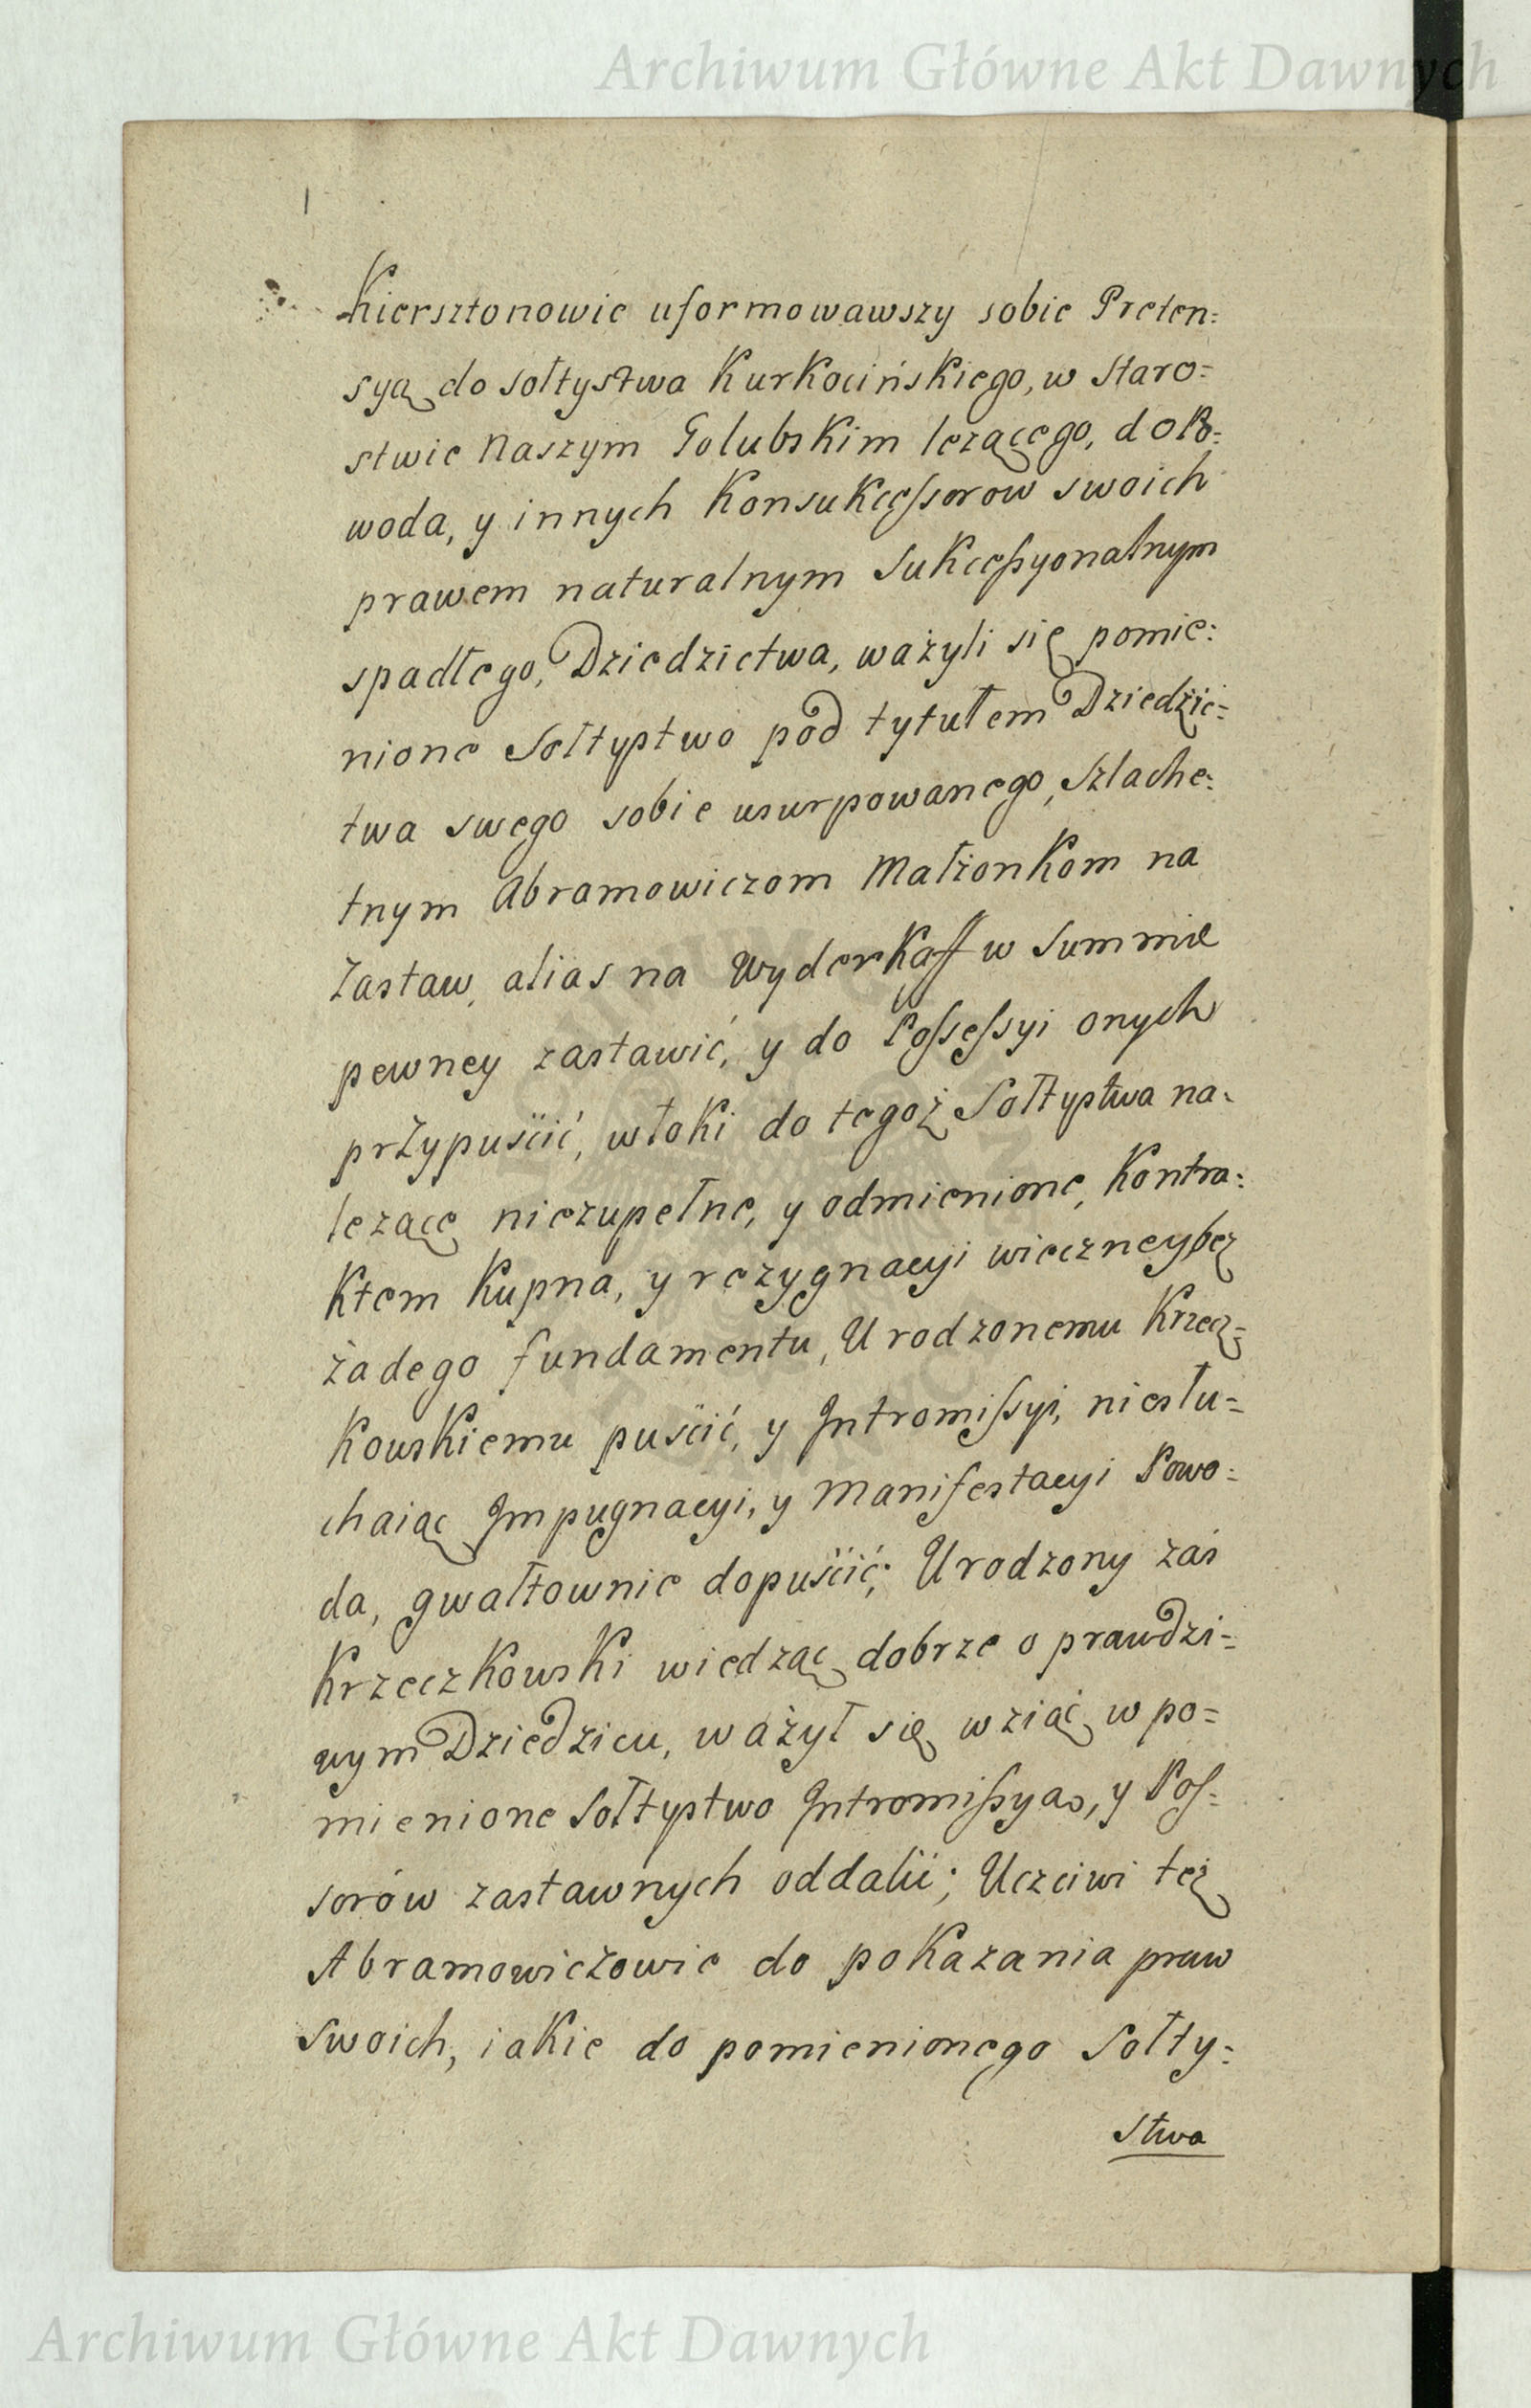 Archiwum Główne Akt Dawnych
Kiersztonowie uformowawszy sobie Preten:
syą do sołtystwa Kurkocińskiego, w Staro=
stwie Naszym Golubskim lezącego, do Po:
woda, y innych Konsukcessorow swoich
prawem naturalnym Sukcessyonalnym
spadłego, Dziedzictwa, ważyli się pomie:
nione Sołtystwo pod tytułem Dziedzic:
twa swego sobie usurpowanego, Szlache:
tnym Abramowiczom Małżonkom na
Zastaw, alias na Wyderkaff w Summie
pewney zastawić, y do Possessyi onych
przypuścić, włoki do tegoż Sołtystwa na:
lezące niezupełne, y odmienione, Kontra:
ktem Kupna, y rezygnacyi wieczney bez
żadego fundamentu, Urodzonemu Krzecz=
Kowskiemu puścić, y Intromissyi, niesłu=
chaiąc Impugnacyi, y Manifestacyi Powo:
da, gwałtownie dopuścić; Urodzony zaś
Krzeczkowski wiedząc dobrze o prawdzi=
wym Dziedzicu, ważył się wziąć w po=
mienione Sołtystwo Intromissyą, y Pos:
sorów zastawnych oddalić; Uczciwi też
Abramowiczowie do pokazania praw
Swoich, iakie do pomienionego Sołty:
stwa
Archiwum Główne Akt Dawnych